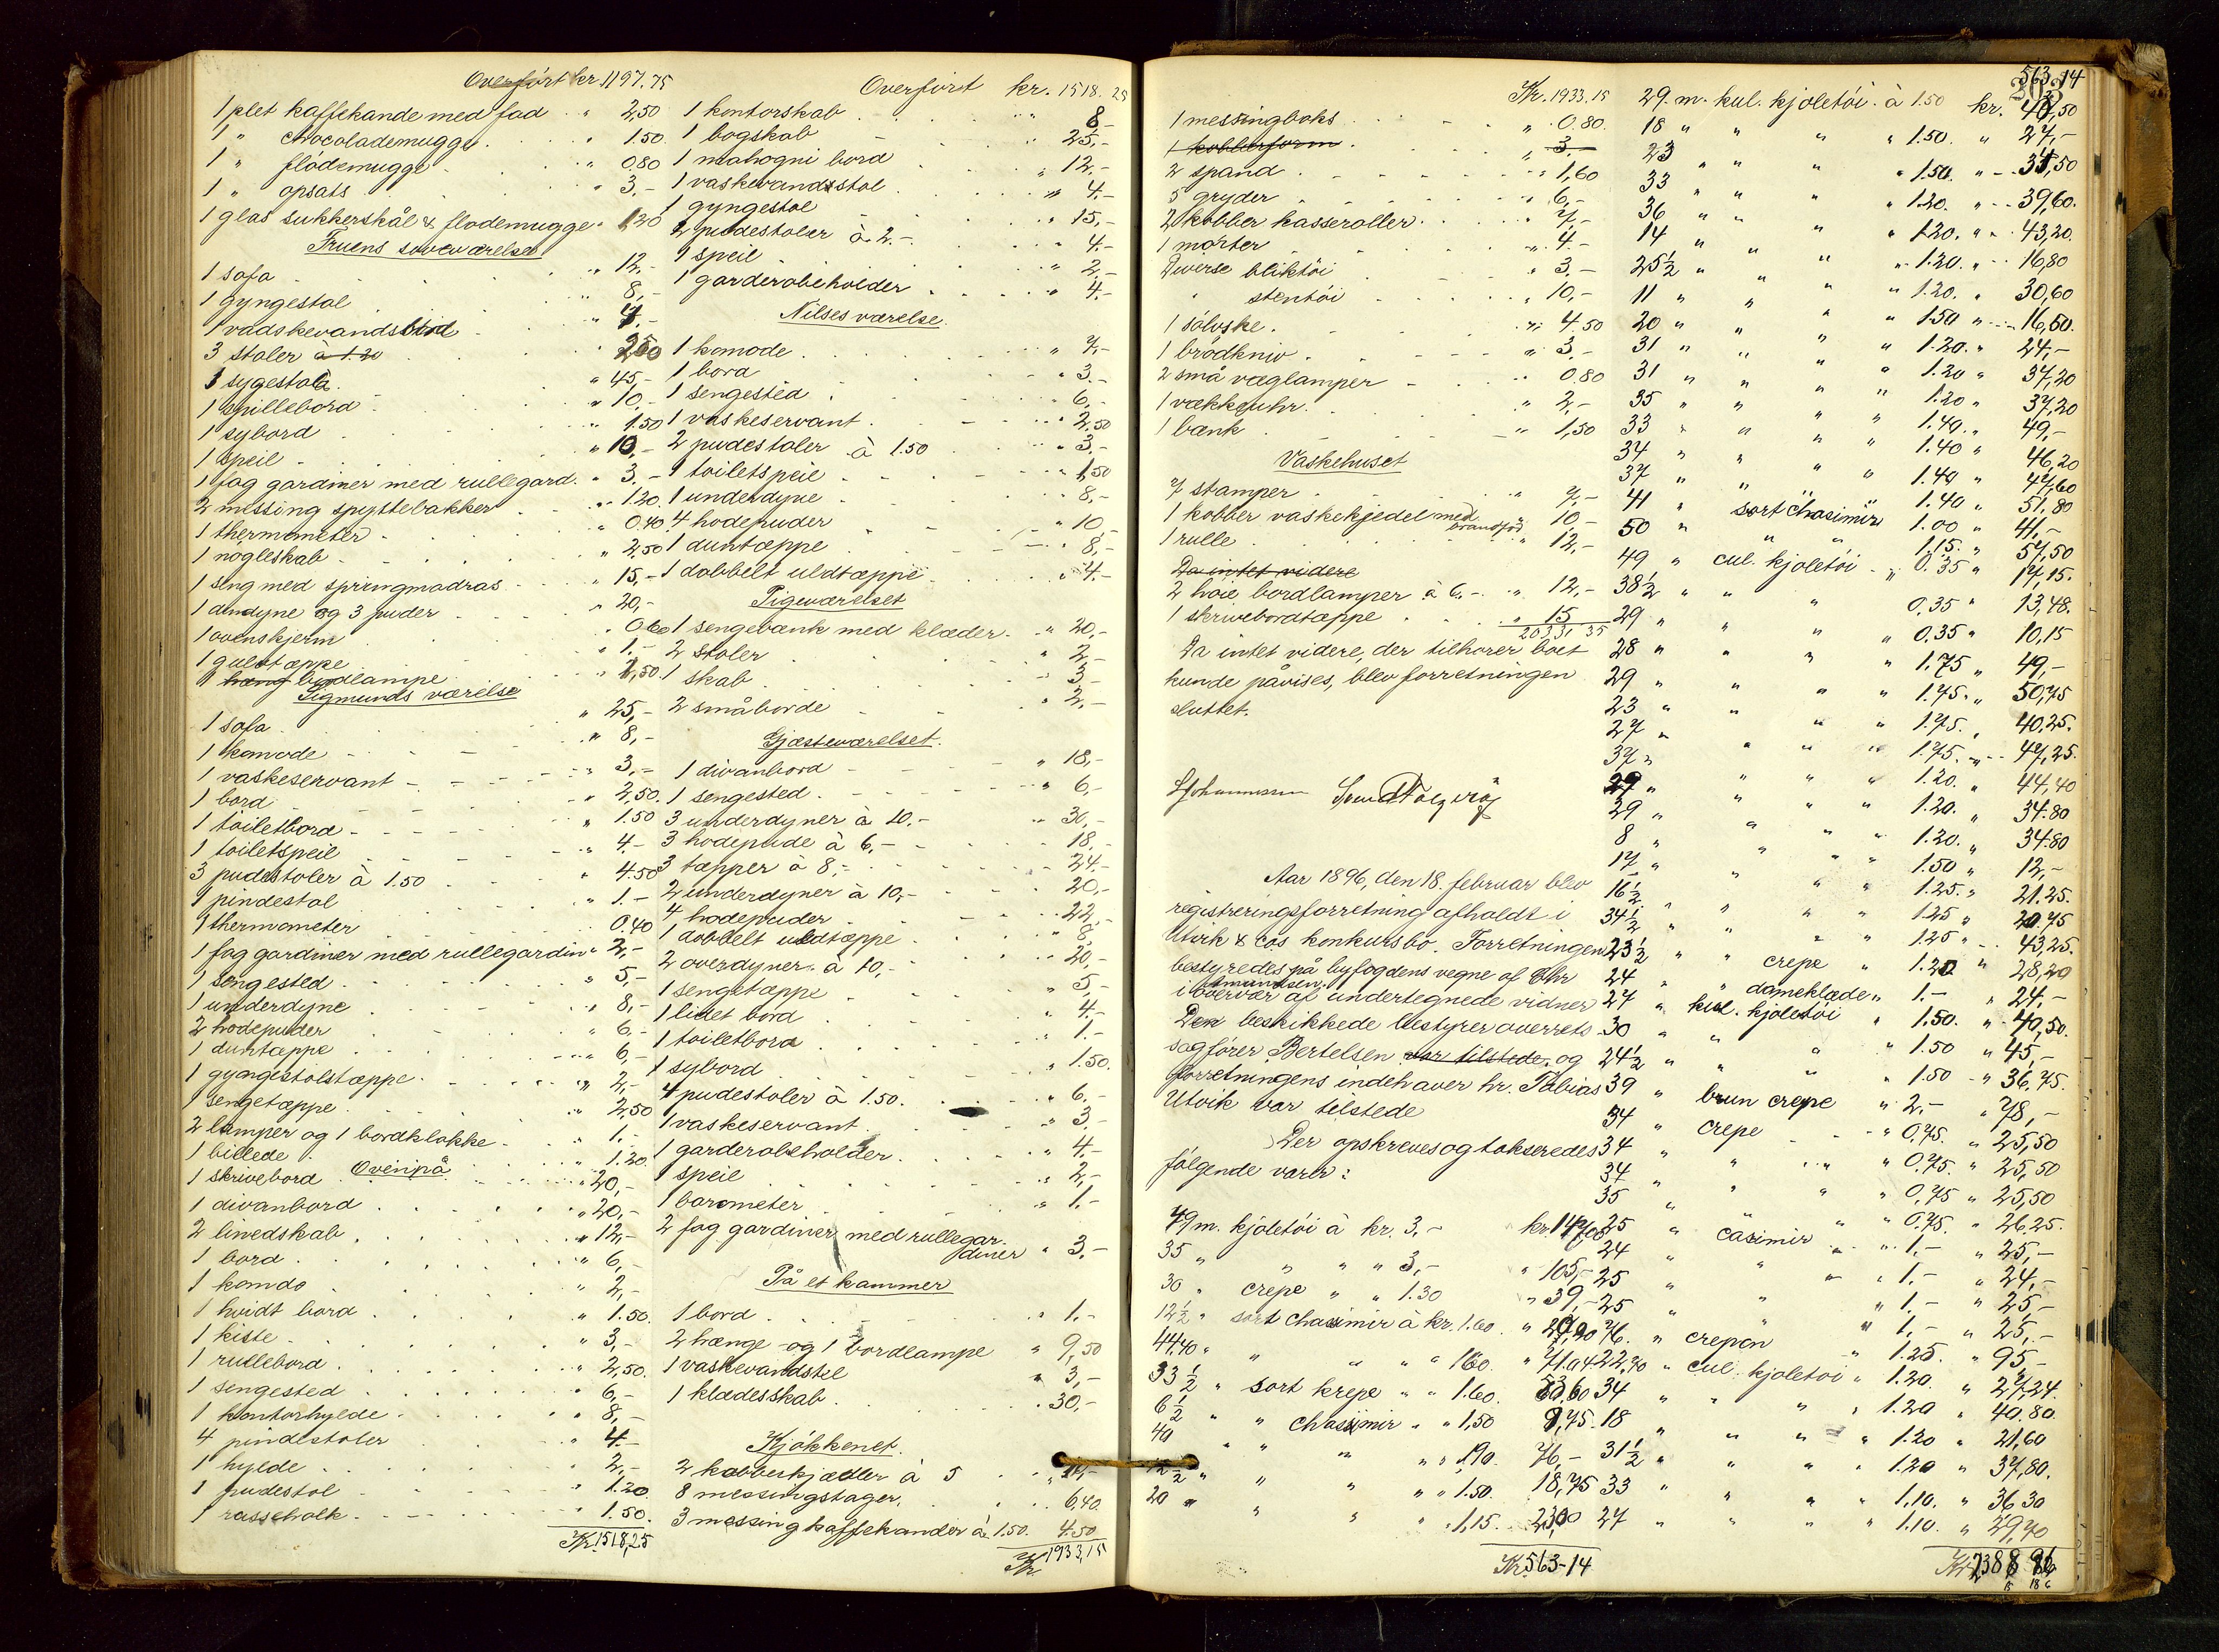 Overført kr. 1197.75
1 plet kaffekande med fad " 2,50
1 " chocolademugge " 1.50
1 " flødemugge " 0.80
1 " opsats " 3.-
1 glas sukkerskål & flødemugge "
Fruens soveværelse
1 sofa " 12,-
1 gyngestol " 8,-
1 vadskevandsstel
3 stoler à 1.20
1 sygestol " 45,-
1 spillebord " 10,-
1 sybord " 1.50
1 speil " 10,-
1 fag gardiner med rullegard. " 3.-
2 messing spyttebakker " 1.20
1 thermometer " 0.40
1 nøgleskab " 2,50
1 seng med springmadras " 15,-
1 dundyne og 3 puder " 20,-
1 ovenskjerm " 0.60
1 gulvtæppe " 1.-
1 hæng bordlampe " 1,50
Sigmunds værelse
1 sofa " 25,-
1 komode " 8,-
1 vaskeservant " 3,-
1 bord " 2,50
1 toiletbord " 1.50
1 toiletspeil " 4.-
3 pudestoler à 1.50 " 4.50
1 pindestol " 1.-
1 thermometer 0.40
1 fag gardiner med rullegardin " 2,-
1 sengested " 5,-
1 underdyne " 8,-
2 hodepuder " 6,-
1 duntæppe " 6,-
1 gyngestolstæppe " 2,-
1 sengetæppe " 2,50
2 lamper og 1 bordklokke " 1.-
1 billede " 1.20
1 skrivebord Ovenpå " 20,-
1 divanbord " 20,-
2 linedskab " 12,-
1 bord " 6,-
1 komdo " 2,-
1 hvidt bord " 1.50
1 kiste " 3,-
1 rullebord " 2,50
1 sengested " 6,-
1 kontorhylde " 8,-
4 pindestoler " 4.-
1 hylde " 2,-
1 pudestol " 1.20
1 " 1.50
Kr. 1518,25
Overført kr. 1518.25
1 kontorskab " 8-
1 bogskab " 25,-
1 mahogni bord " 12,-
1 vaskevandsstol " 4.-
1 gyngestol " 15,-
2 pudestoler à 2.- " 4.-
1 speil " 2,-
1 garderobeholder " 4.-
Nilses værelse.
1 komode " 7,-
1 bord " 3.-
1 sengested " 6,-
1 vaskeservant " 2,50
2 pudestoler à 1.50 " 3.-
1 toiletspeil " 1,50
1 underdyne " 8,-
4 hodepuder " 10,-
1 duntæppe " 8,-
1 dobbelt uldtæppe " 4.-
Pigeværelset
1 sengebænk med klæder " 20,-
2 stoler " 2,-
1 skab " 3-
2 småborde " 2,-
Gjæsteværelset.
1 divanbord " 18,-
1 sengested " 6,-
3 underdyner à 10.- " 30,-
3 hodepude à 6,- 18,-
3 tæpper à 8,- 24.-
2 underdyner à 10,- 20,-
4 hodepuder 22,-
1 dobbelt uldtæppe " 8,-
2 overdyner à 10,- 20,-
1 sengetæppe " 5,-
1 lidet bord " 4.-
1 toiletbord " 1.-
1 sybord " 1.50.
4 pudestoler à 1.50. " 6.-
1 vaskeservant " 3.-
1 garderobeholder " 4.-
1 speil " 2,-
1 barometer " 1.-
2 fag gardiner med rullegar-
diner " 3.-
På et kammer
1 bord " 1.-
2 hænge- og 1 bordlampe " 9,50
1 vaskevandstel " 3,-
1 klædesskab 30,-
Kjøkkenet.
2 kobberkjædler à 5 "
8 messingstager. 6,40
3 messing kaffekander à 1.50. 4.50
Kr. 1933,15
Kr. 1933,15
1 messingboks " 0.80
1 kobberform " 3.-
2 spand " 1,60
5 gryder " 6,-
2 kobber kasseroller " 7,-
1 morter " 4.-
Diverse bliktøi " 3.-
" stentøi " 10,-
1 sølvske " 4.50
1 brødkniv " 3.-
2 små væglamper " 0.80
1 vækkeuhr " 2,-
1 bænk " 1,50
Vaskehuset
7 stamper " 7,-
1 kobber vaskekjedel med brandfod 10,-
1 rulle " 12,-
Da intet videre
2 høie bordlamper à 6.- " 12,-
1 skrivebordtæppe " 15
Da intet videre, der tilhører boet
kunde påvises, blev forretningen
sluttet.
Aar 1896, den 18. februar blev
registreringsforretning afholdt i
Utvik & cos konkursbo. Forretningen
bestyredes på byfogdens vegne af Chr
i overvær af undertegnede vidner
Den beskikkede bestyrer overrets
sagfører Bertelsen var tilstede. og
forretningens indehaver hr. Tobias
Utvik var tilstede
Der opskreves og takseredes
følgende varer:
49 m. kjoletøi à kr. 3,- kr. 147,00
35 " " " " 3,- " 105,-
30 " crepe " " 1.30 " 39,-
12½ " sort chasimir à kr. 1.60. "
44,40 " " " " 1.60 " 71.04
33½ " sort krepe " " 1.60. 53,60
6½ " " chasimir " " 1,50 9,75
40 " " " " 1.90. 76,-
12½ " " " " 1.50. 18,75
20 " " " " 1,15. 23,00
Kr. 563-14
203
563.14
29. m. kul. kjoletøi à 1.50 kr. 43,50
18 " " " " 1.50. " 27,-
23 " " " " 1.50. " 34,50
33 " " " " 1.20. " 39,60.
36 " " " " 1.20. " 43,20.
14 " " " " 1.20. " 16,80
25½ " " " " 1.20. " 30,60
11 " " " " 1.50 " 16,50.
20 " " " " 1.20. " 24,-
31 " " " " 1.20 " 37,20
31 " " " " 1.20 " 37,20
35 " " " " 1.40. " 49,-
33 " " " " 1.40 " 46,20
34 " " " " 1.40 " 47,60
37 " " " " 1.40 " 51,80
41 " sort Chasimir 1.00 " 41,-
50 " " " 1.15. " 57,50
49 " cul. kjoletøi " 0.35 " 17,15.
38½ " " " 0,35 " 13,48.
29 " " " " 0.35 " 10,15
28 " " " " 1.75 " 49,-
29 " " " " 1.75. " 50,75
23 " " " " 1.75. " 40,25.
27 " " " " 1.75. " 47,25.
37 " " " " 1.20. " 44,40
29 " " " " 1.20. " 34.80
29 " " " " 1.20. " 34.80
8 " " " " 1.50 " 12,-
17 " " " " 1.25. " 21.25.
16½ " " " " 1.25 "
34½ " " " " 1.25 " 43,25.
23½ " " crepe " 1.20 " 28,20
24 " " dameklæde " 1.- " 24,-
27 " kul. kjoletøi " 1.50. " 40,50.
30 " " " " 1.50 " 45,-
24½ " " " " 1.50 " 36,75.
39 " brun crepe " 2.- " 78,-
34 " crepe " 0,75. " 25,50
34 " " " 0,75. " 25,50
34 " " " 0,75 " 25,50
35 " " " 0.75. " 26.25.
25 " casimir " 1.- " 25,-
24 " " " 1.- " 24,-
25 " " " 1.- " 25,-
25 " " " 1.- " 25,-
76. " crepon " 1.25. " 95-
22,70 " cul. kjoletøi " 1.20. " 27,24.
34 " " " " 1.20 " 40.80.
18 " " " " 1.20 " 21,60
31½ " " " " 1.20 " 37,80.
33 " " " " 1.10. " 36 30
27 " " " " 1.10. " 29,70
Kr.